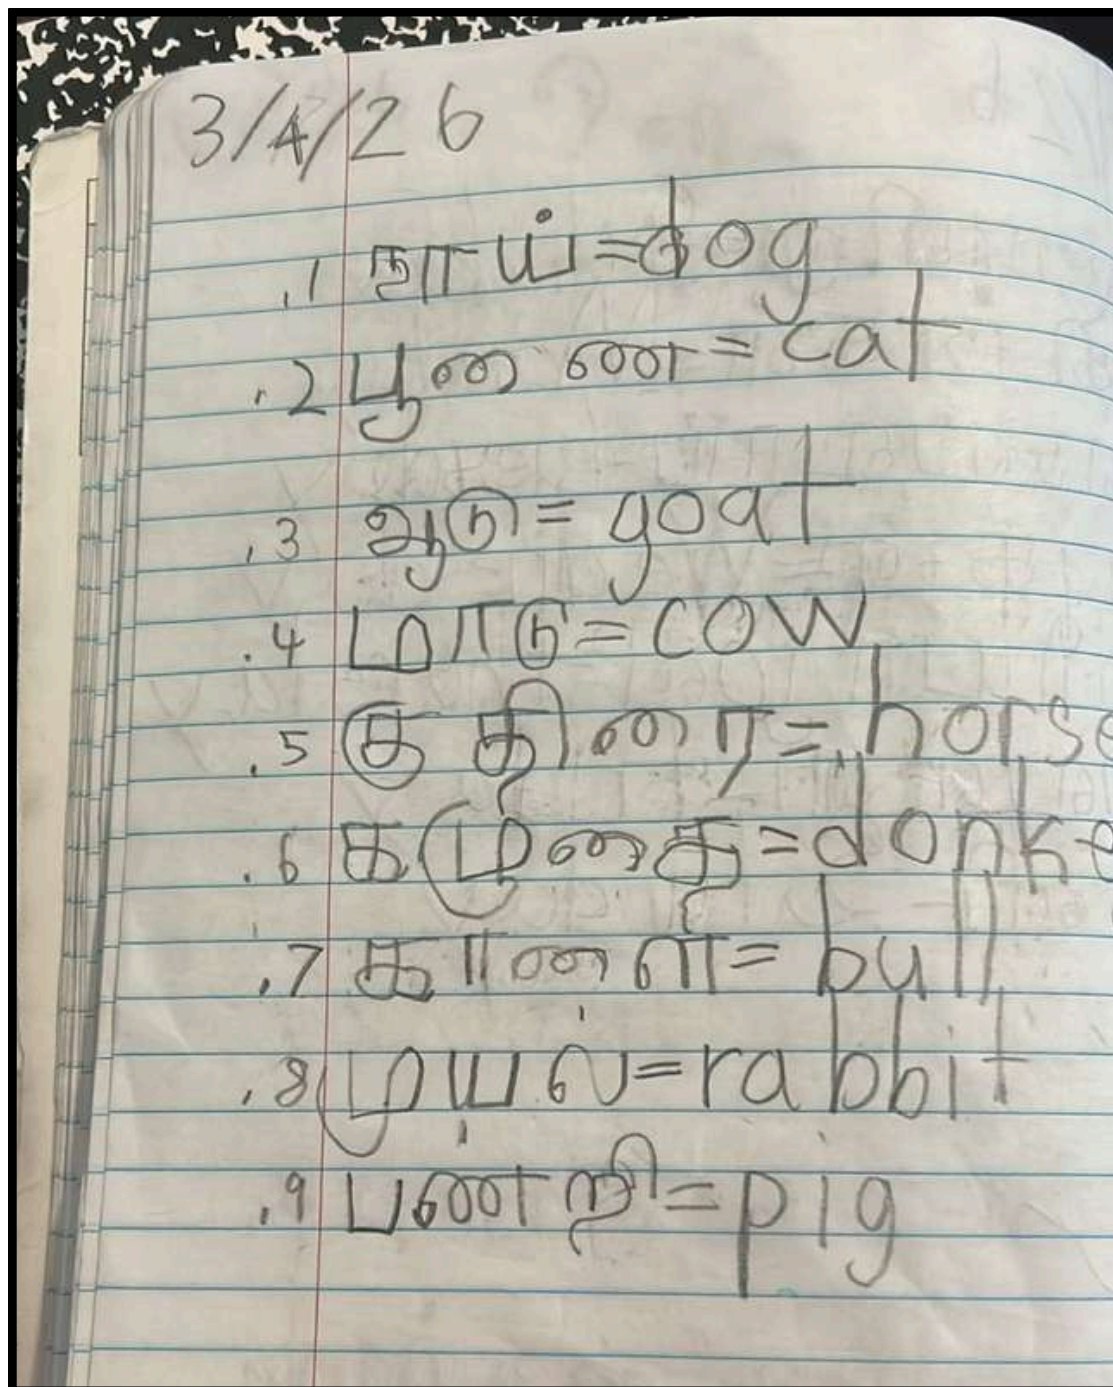 3/4/26
.1 நாய்=dog
.2 பூனை=cat
.3 ஆடு=goat
.4 மாடு=cow
.5 குதிரை=horse
.6 கழுதை=donke
.7 காளை=bull
.8 முயல்=rabbit
.9 பன்றி=pig